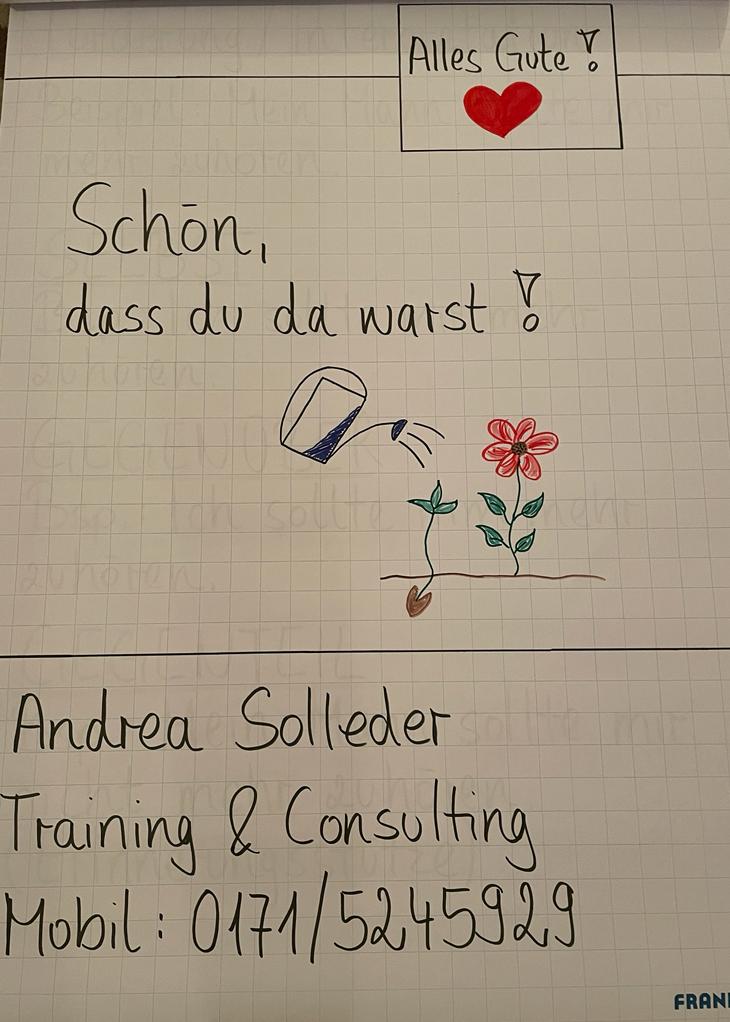 Alles Gute!
Schön,
dass du da warst!
Andrea Solleder
Training & Consulting
Mobil: 0171/5245929